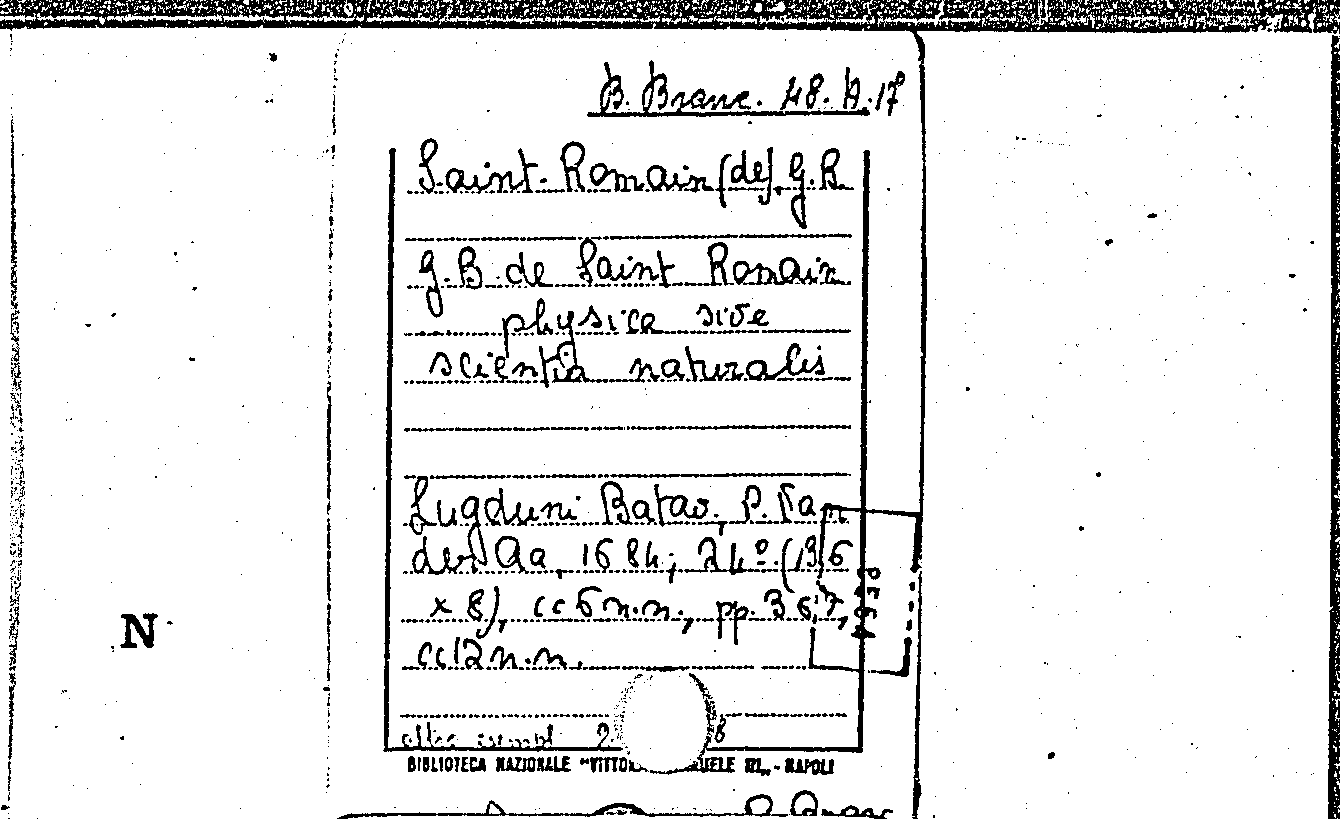 B. Branc. 48. A. 17
Saint-Romain (de), G.B.
G.B. de Saint Romain
physica sive
scientia naturalis
Lugduni Batav., P. Van
der Aa, 1684; 24º (13,6
x 8), cc 6 n.n., pp. 367,
cc 12 n.n.
N
altro esempl 2
8
BIBLIOTECA NAZIONALE "VITTOR UELE III" - NAPOLI